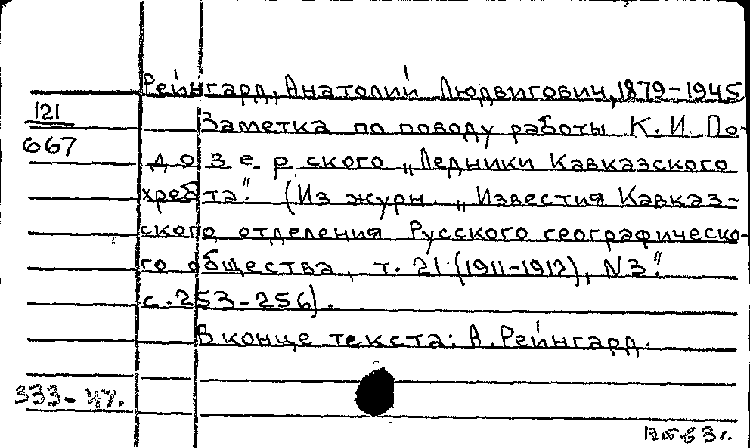 Рейнгард, Анатолий Людвигович, 1879-1945
121
Заметка по поводу работы К. И. По-
667
дозерского „Ледники Кавказского
хребта". (Из журн. „Известия Кавказ-
ского отделения Русского географическо-
го общества, т. 21 (1911-1912), N3."
с. 253-256).
В конце текста: А. Рейнгард.
333-47.